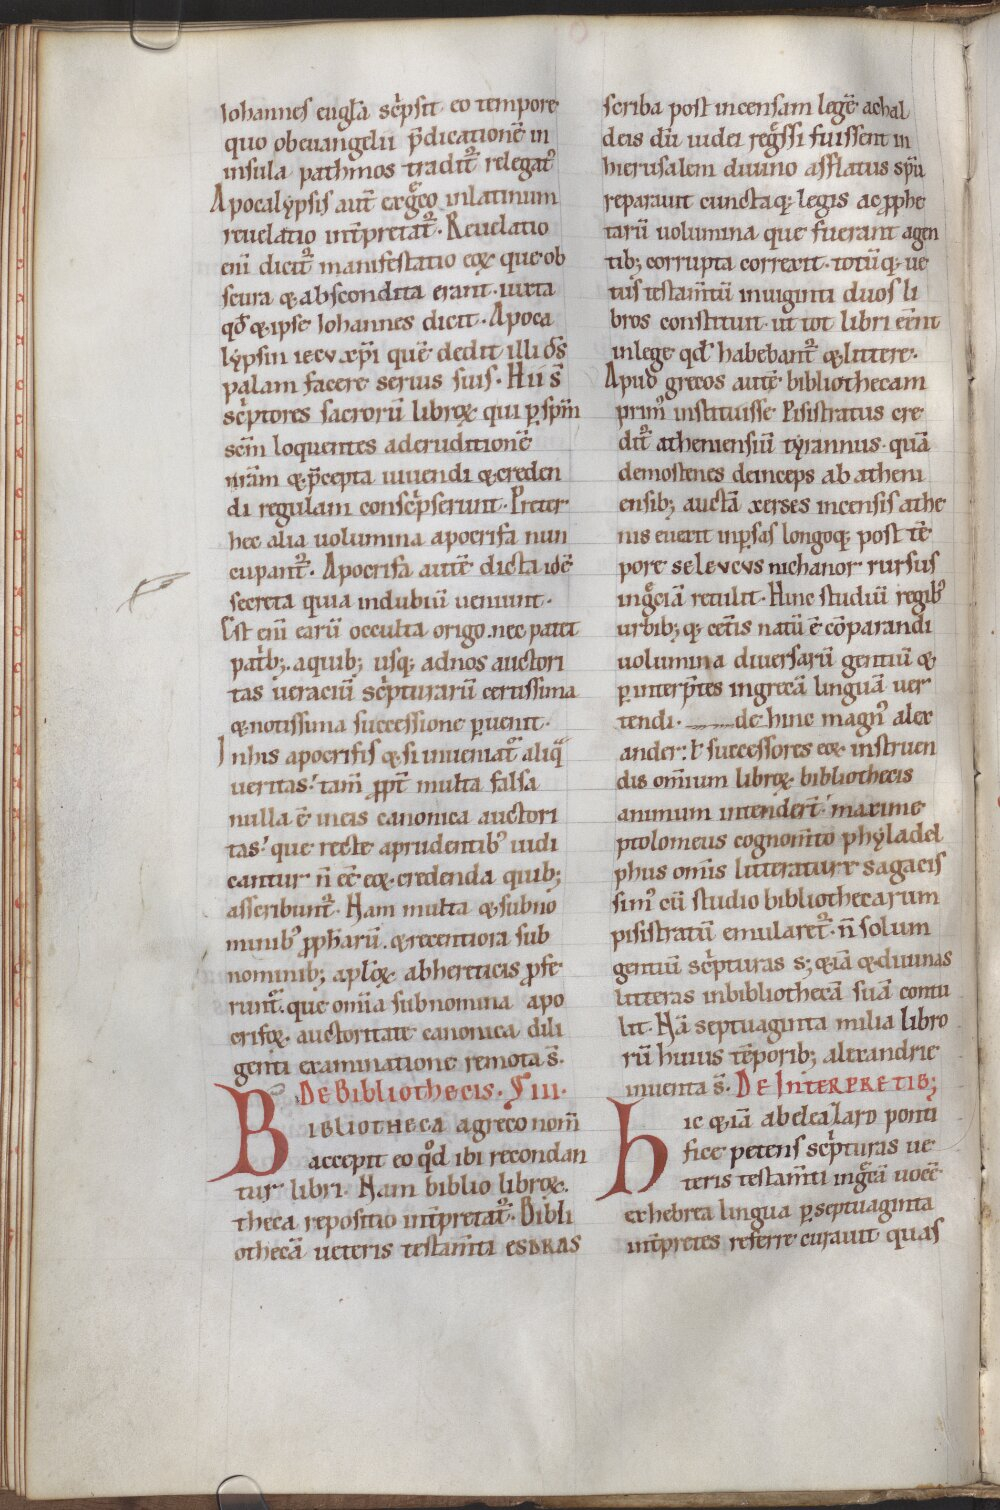 Iohannes eugła scͥpsit eo tempore
quo ob euangelii p̄dicationē in
insula pathmos tradit᷑ relegat᷒
Apocalypsis aut̄ ex gͤco in latinum
reuelatio int̄pretat᷑. Reuelatio
eni dicit᷑ manifestatio eoꝝ que ob
scura & abscondita erant. iuxta
qđ & ipse Iohannes dicit. Apoca
lypsin iecv xp̄i quē dedit illi ds̄
palam facere seruis suis. Hii s̄
scͥptores sacrorū libroꝝ qui ꝑ spm̄
scm̄ loquentes ad eruditionē
nr̄am & p̄cepta uiuendi & creden
di regulam conscͥpserunt. Preter
hec alia uolumina apocrifa nun
cupant᷑. Apocrifa autē dicta idē
secreta quia in dubiū ueniunt.
Est eni earū occulta origo. nec patet
patͥb; a quib; usq; ad nos auctori
tas ueraciū scͥpturarū certissima
& notissima successione ꝑuenit.
In his apocrifis & si inueniat᷑ aliqͣ
ueritas. tam̄ ꝓpt̄ multa falsa
nulla ē in eis canonica auctori
tas. que recte a prudentib᷒ iudi
cantur n̄ ēē eoꝝ credenda quib;
asscribunt᷑. Nam multa & sub no
minib᷒ ꝓpharū. & recentiora sub
nominib; aploꝝ ab hereticis ꝓfe
runt᷑. que omīa sub nomina apo
crifoꝝ auctoritate canonica dili
genti examinatione remota s̄.
De Bibliothecis. Viii.
Bibliotheca a greco nom̄
accepit eo qͦd ibi recondan
tur libri. Nam biblio libroꝝ.
theca repositio int̄pretat᷑. Bibli
othecā ueteris testam̄ti esdras
scriba post incensam legē a chal
deis dū iudei regͤssi fuissent in
hierusalem diuino afflatus spū
reparauit cunctaq; legis ac ꝓphe
tarū uolumina que fuerant a gen
tib; corrupta correxit. totūq; ue
tus testam̄tū in uiginti duos li
bros constituit. ut tot libri eēnt
in lege qđ habebant᷑ & littere.
Apud grecos autē bibliothecam
prim᷒ instituisse Pisistratus cre
dit᷑ atheniensiū tyrannus. quā
demostenes deinceps ab atheni
ensib; auctā xerses incensis athe
nis euexit in ꝑsas longoq; post tē
pore selevcvs nichanor rursus
in gͤciā retulit. Hinc studiū regib᷒
urbib; q; cet̄is natū ē cōparandi
uolumina diuersarū gentiū &
ꝑ interp̄tes in grecā linguā uer
tendi. de hinc magn᷒ alex
ander: ł successores eoꝝ instruen
dis omnium libroꝝ bibliothecis
animum intender̄t. maxime
ptolomeus cognom̄to phyladel
phus omīs litterature sagacis
sim᷒ cū studio bibliothecarum
pisistratū emularet᷑. n̄ solum
gentiū scͥpturas s; & iā & diuinas
litteras in bibliothecā suā contu
lit. Nā septuaginta milia libro
rū huius tēporib; alexandrie
inuenta s̄. De Interpretib;
hic & iā ab eleazaro ponti
fice petens scͥpturas ue
teris testam̄ti in gͤcā uocē
ex hebrea lingua ꝑ septuaginta
int̄pretes referre curauit quas